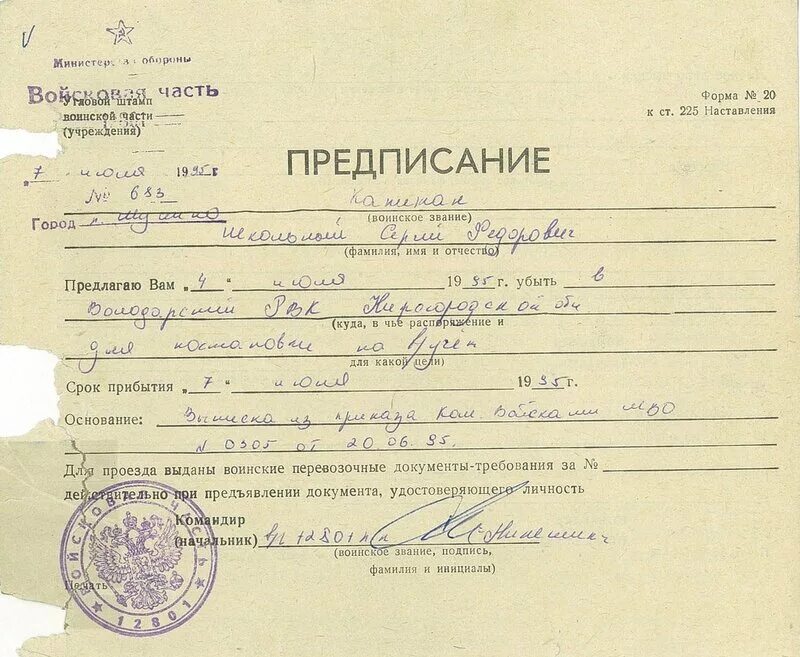 Министерство обороны
Войсковая часть
Угловой штамп
воинской части
(учреждения)
Форма № 20
к ст. 225 Наставления
„7 июля 1995 г
№ 683
Город п. Мулино
ПРЕДПИСАНИЕ
Капитан
(воинское звание)
Школьный Сергей Федорович
(фамилия, имя и отчество)
Предлагаю Вам „4“ июля 1995 г. убыть в
Володарский РВК Нижегородской обл
(куда, в чье распоряжение и
для постановки на Учёт
для какой цели)
Срок прибытия „7“ июля 1995 г.
Основание: Выписка из приказа Ком. Войсками МВО
N 0305 от 20.06.95.
Для проезда выданы воинские перевозочные документы-требования за №
действительно при предъявлении документа, удостоверяющего личность
Командир
(начальник) 12801
(воинское звание, подпись,
фамилия и инициалы)
Печать
ВОЙСКОВАЯ ЧАСТЬ
12801